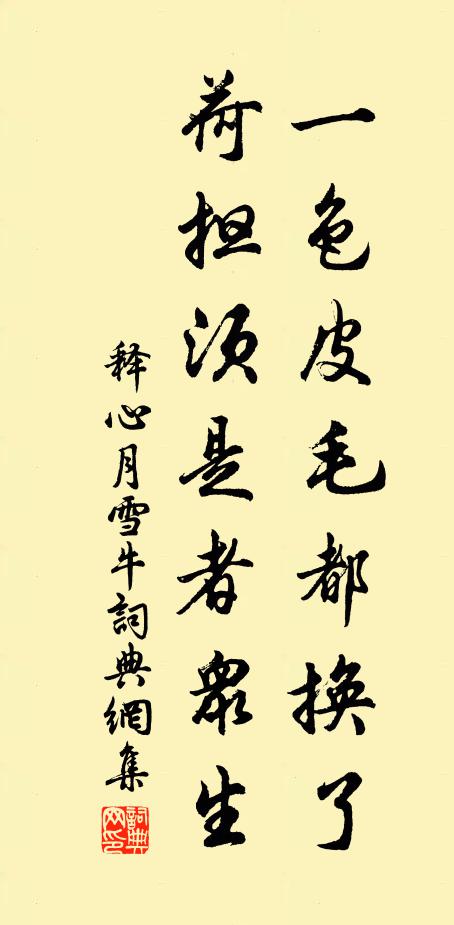 一色皮毛都换了
荷担须是者眾生
释心月雪牛詞典網集
詞典
网印